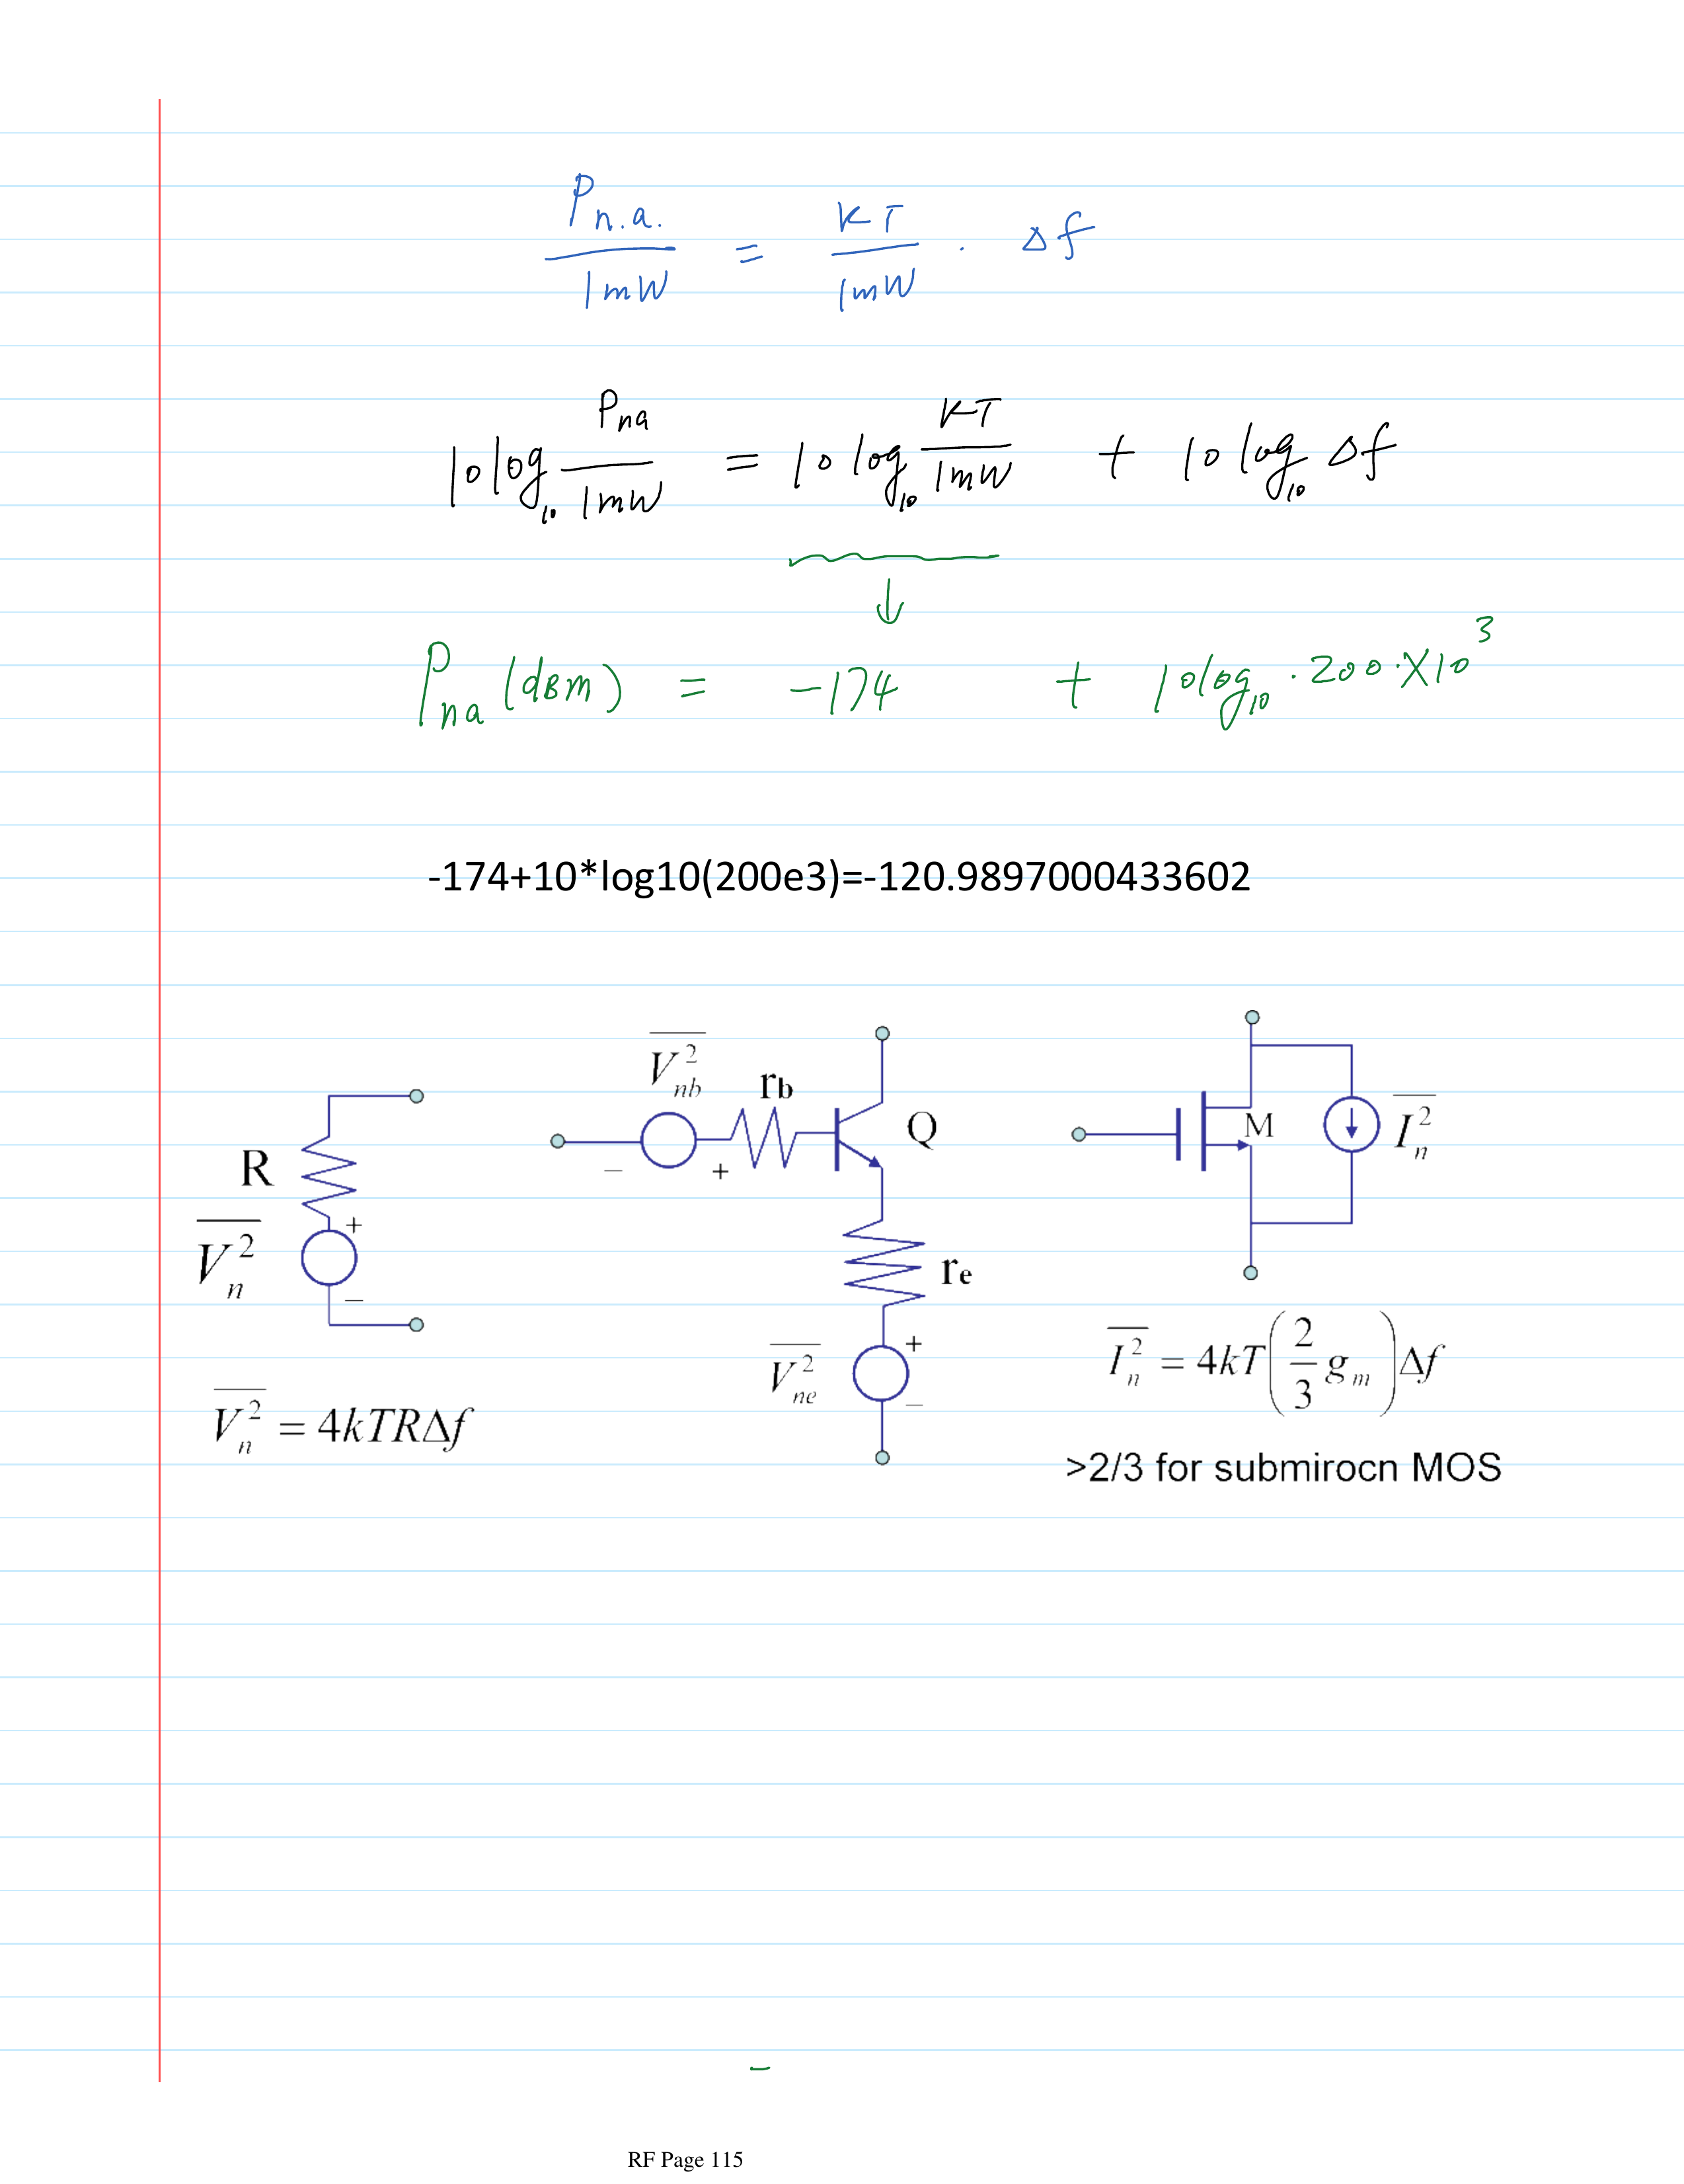 P n.a. / 1mW = KT / 1mW · Δf
10log₁₀ Pna / 1mW = 10 log₁₀ KT / 1mW + 10 log₁₀ Δf
Pna (dBm) = -174 + 10log₁₀ · 200·X10³
-174+10*log10(200e3)=-120.9897000433602
V²nb
rb
Q
M
I²n
R
+
−
V²n
−
+
re
V²ne
+
−
I²n = 4kT(2/3 gm)Δf
V²n = 4kTRΔf
>2/3 for submirocn MOS
RF Page 115